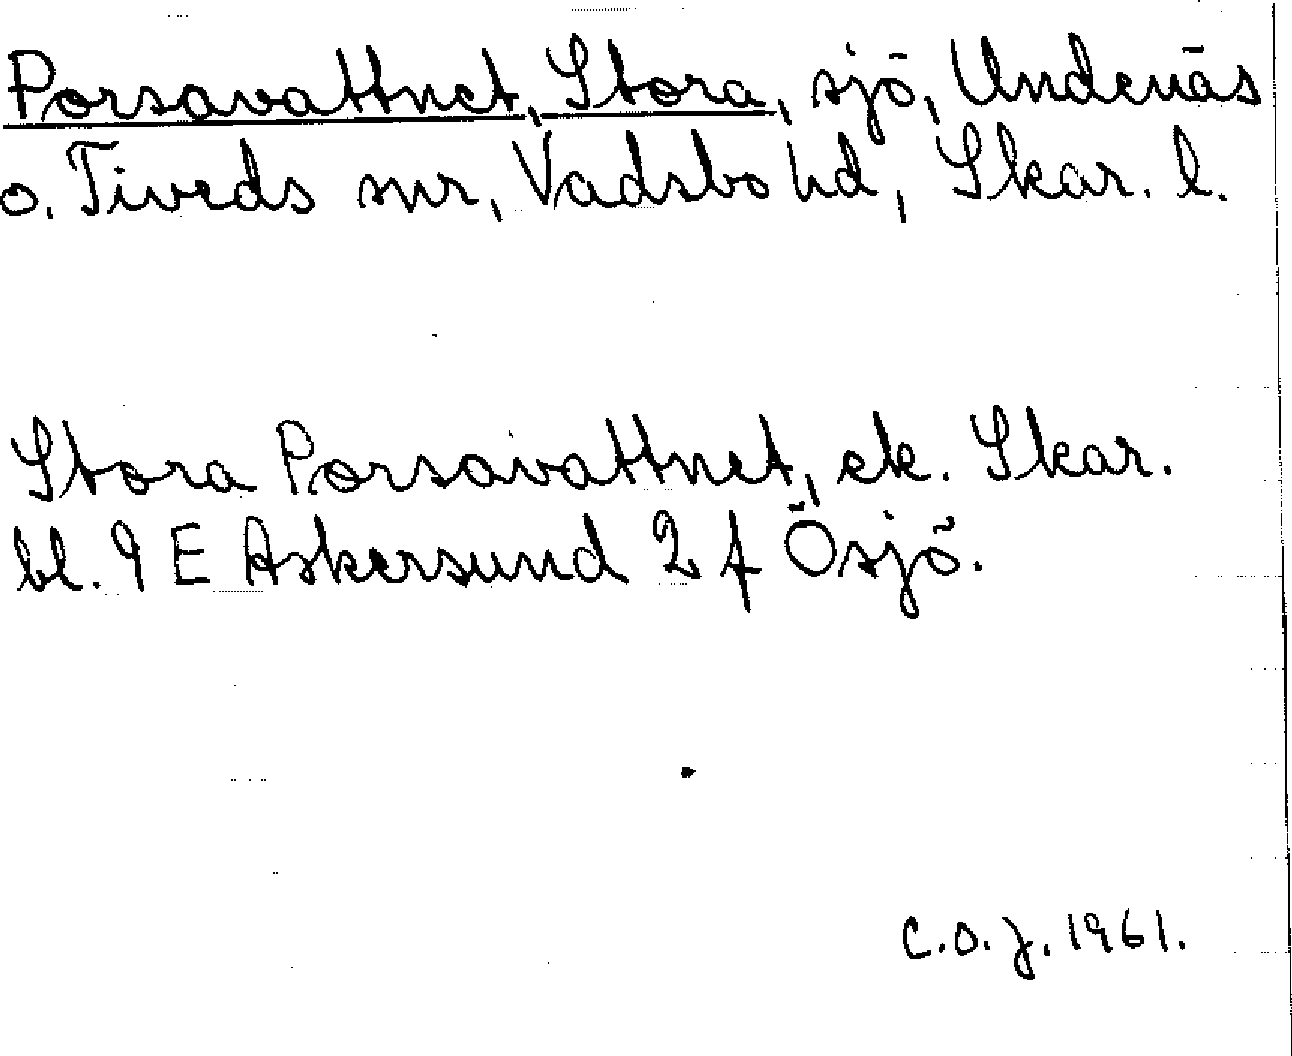 Porsavattnet, Stora, sjö, Undenäs
o. Tiveds snr, Vadsbo hd, Skar. l.
Stora Porsavattnet, ek. Skar.
bl. 9 E Askersund 2 f Ösjö.
C.O.J. 1961.